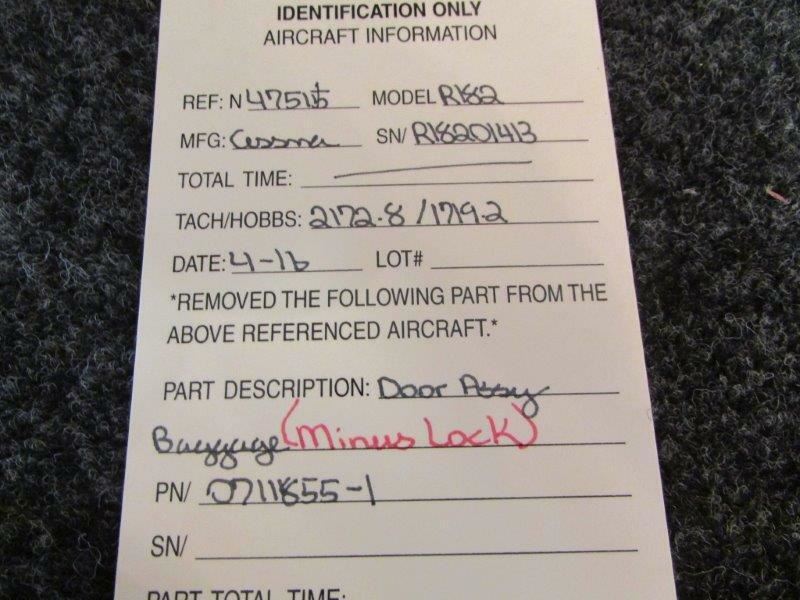 IDENTIFICATION ONLY
AIRCRAFT INFORMATION
REF: N MODEL R182
MFG: Cessna SN/ R18201413
TOTAL TIME:
TACH/HOBBS: 2172.8 / 1719.2
DATE: 4-16 LOT#
*REMOVED THE FOLLOWING PART FROM THE
ABOVE REFERENCED AIRCRAFT.*
PART DESCRIPTION: Door Assy
Baggage (Minus Lock)
PN/ 0711855-1
SN/
PART TOTAL TIME: